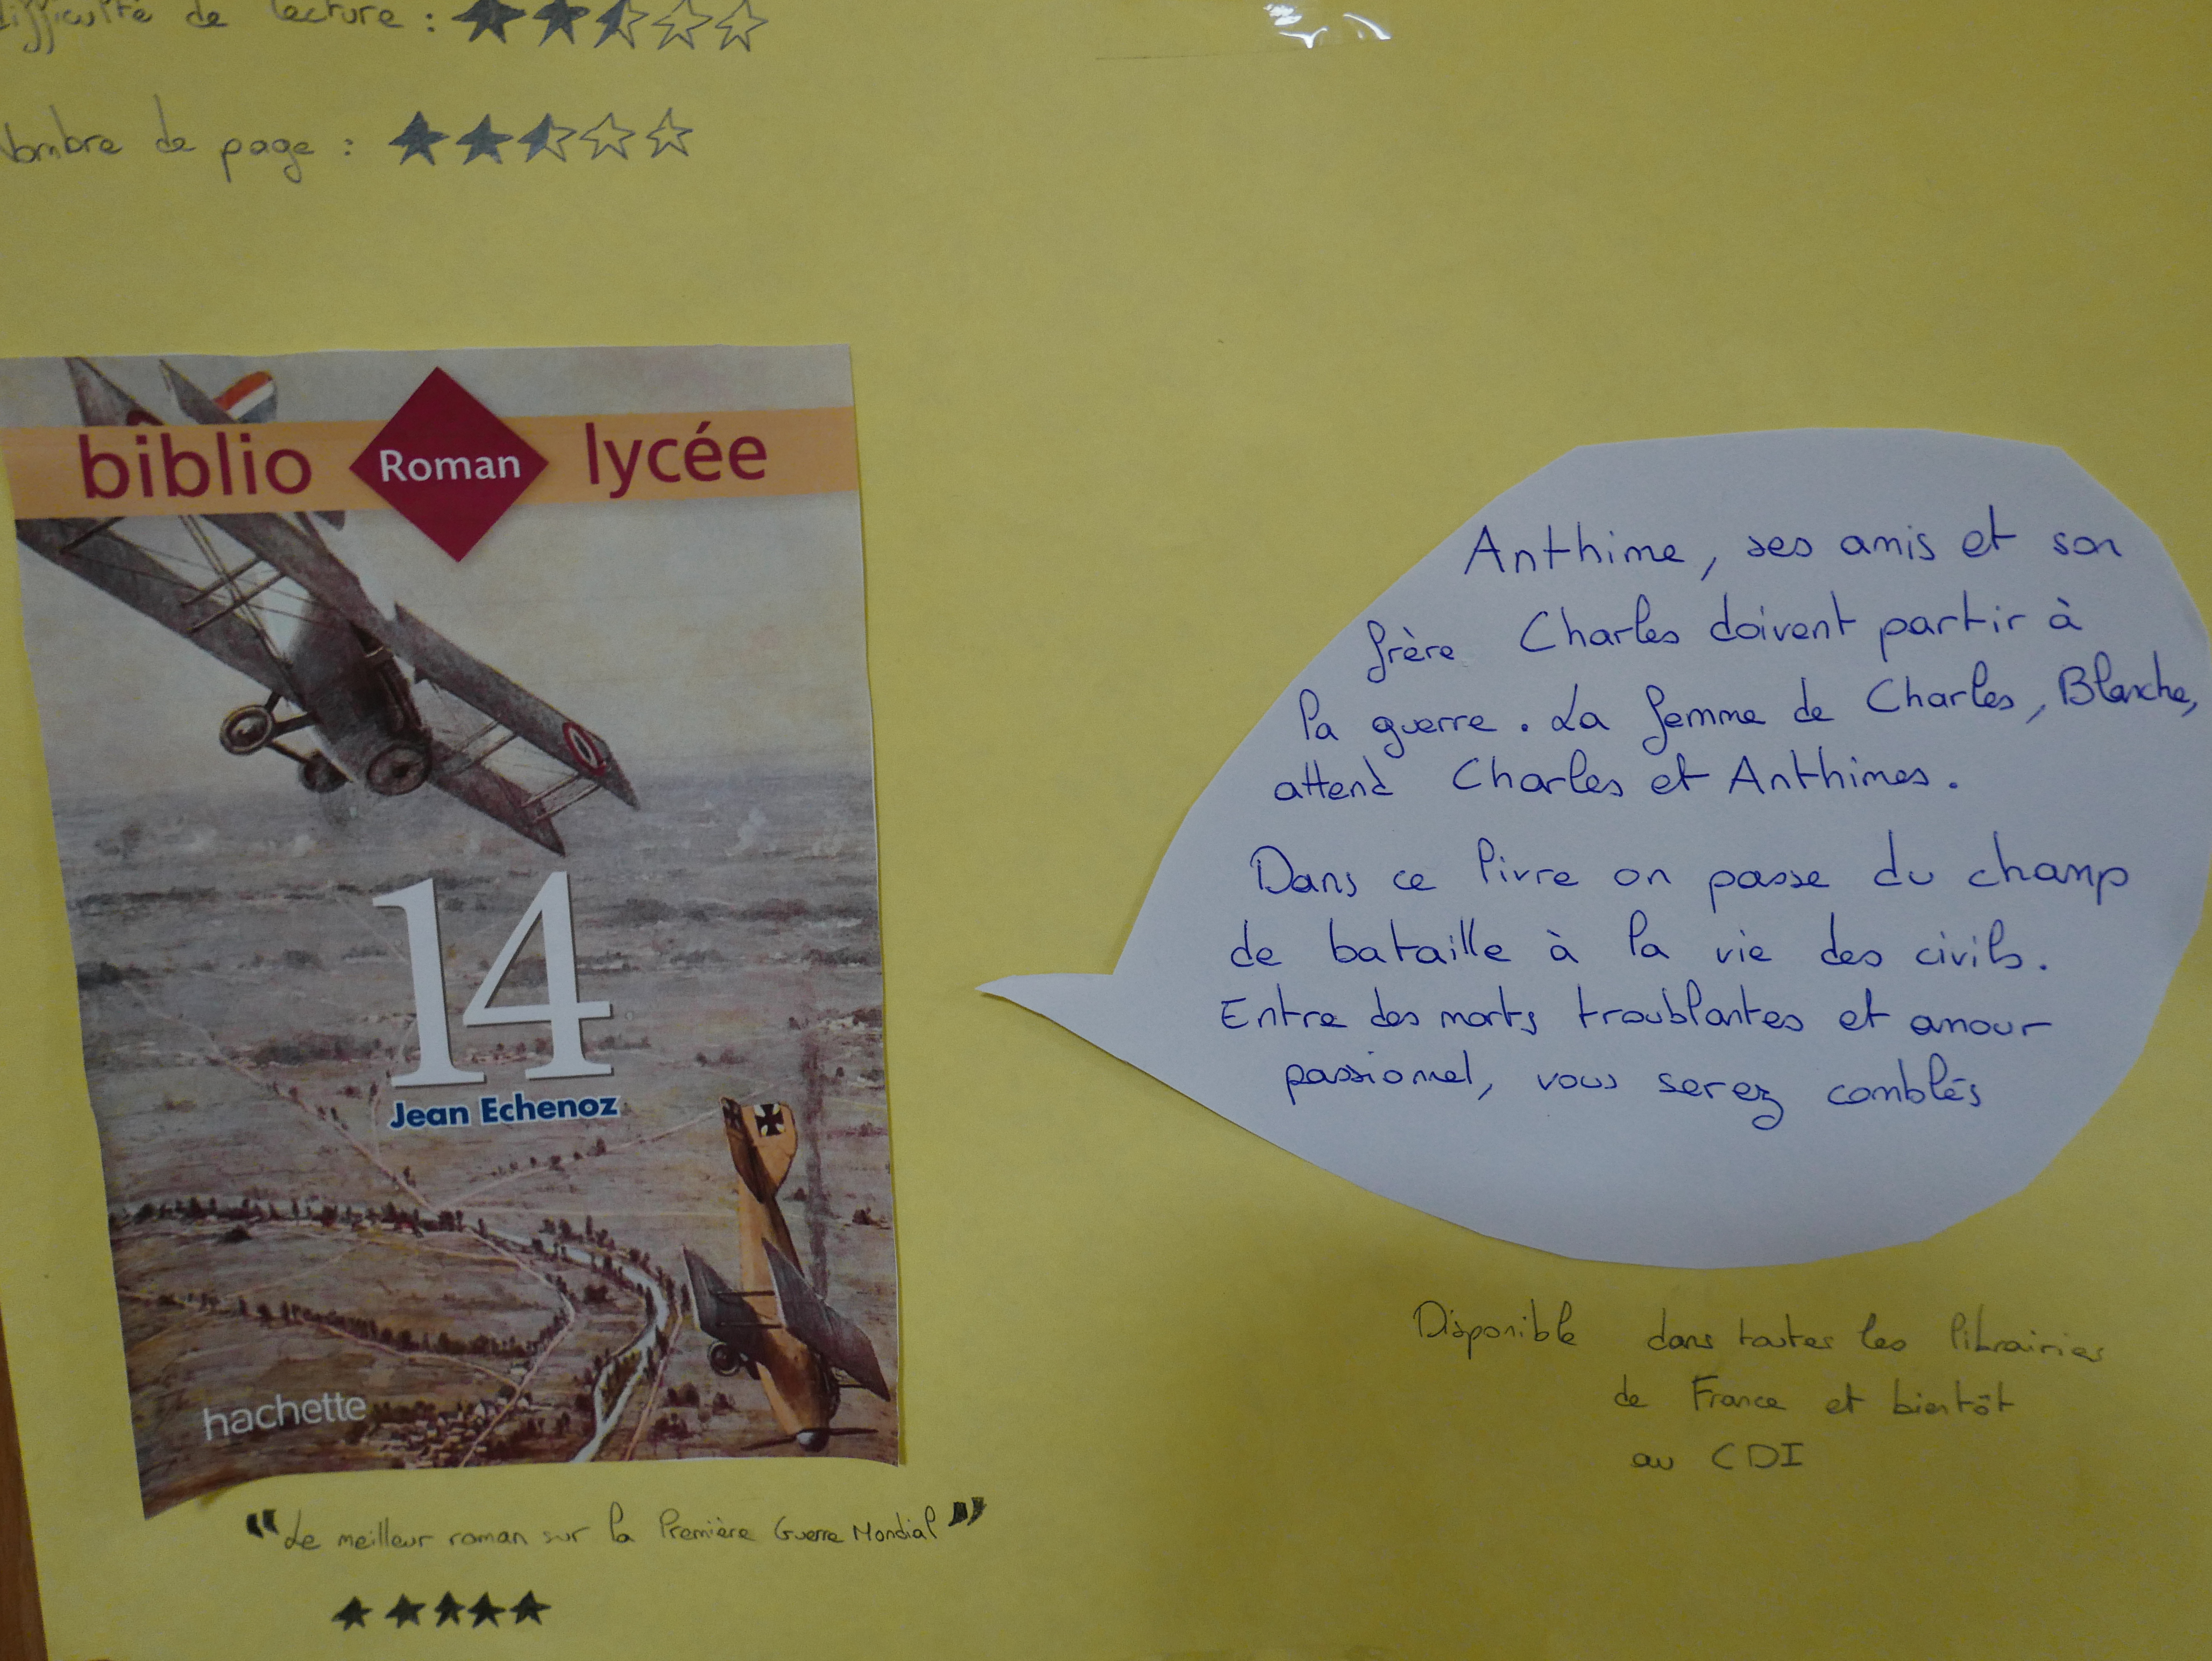 difficulté de lecture :
Nombre de page :
biblio Roman lycée
14
Jean Echenoz
hachette
"Le meilleur roman sur la Première Guerre Mondial"
Anthime, ses amis et son
frère Charles doivent partir à
la guerre. La femme de Charles, Blanche,
attend Charles et Anthimes.
Dans ce livre on passe du champ
de bataille à la vie des civils.
Entre des morts troublantes et amour
passionnel, vous serez comblés
Disponible dans toutes les librairies
de France et bientôt
au CDI